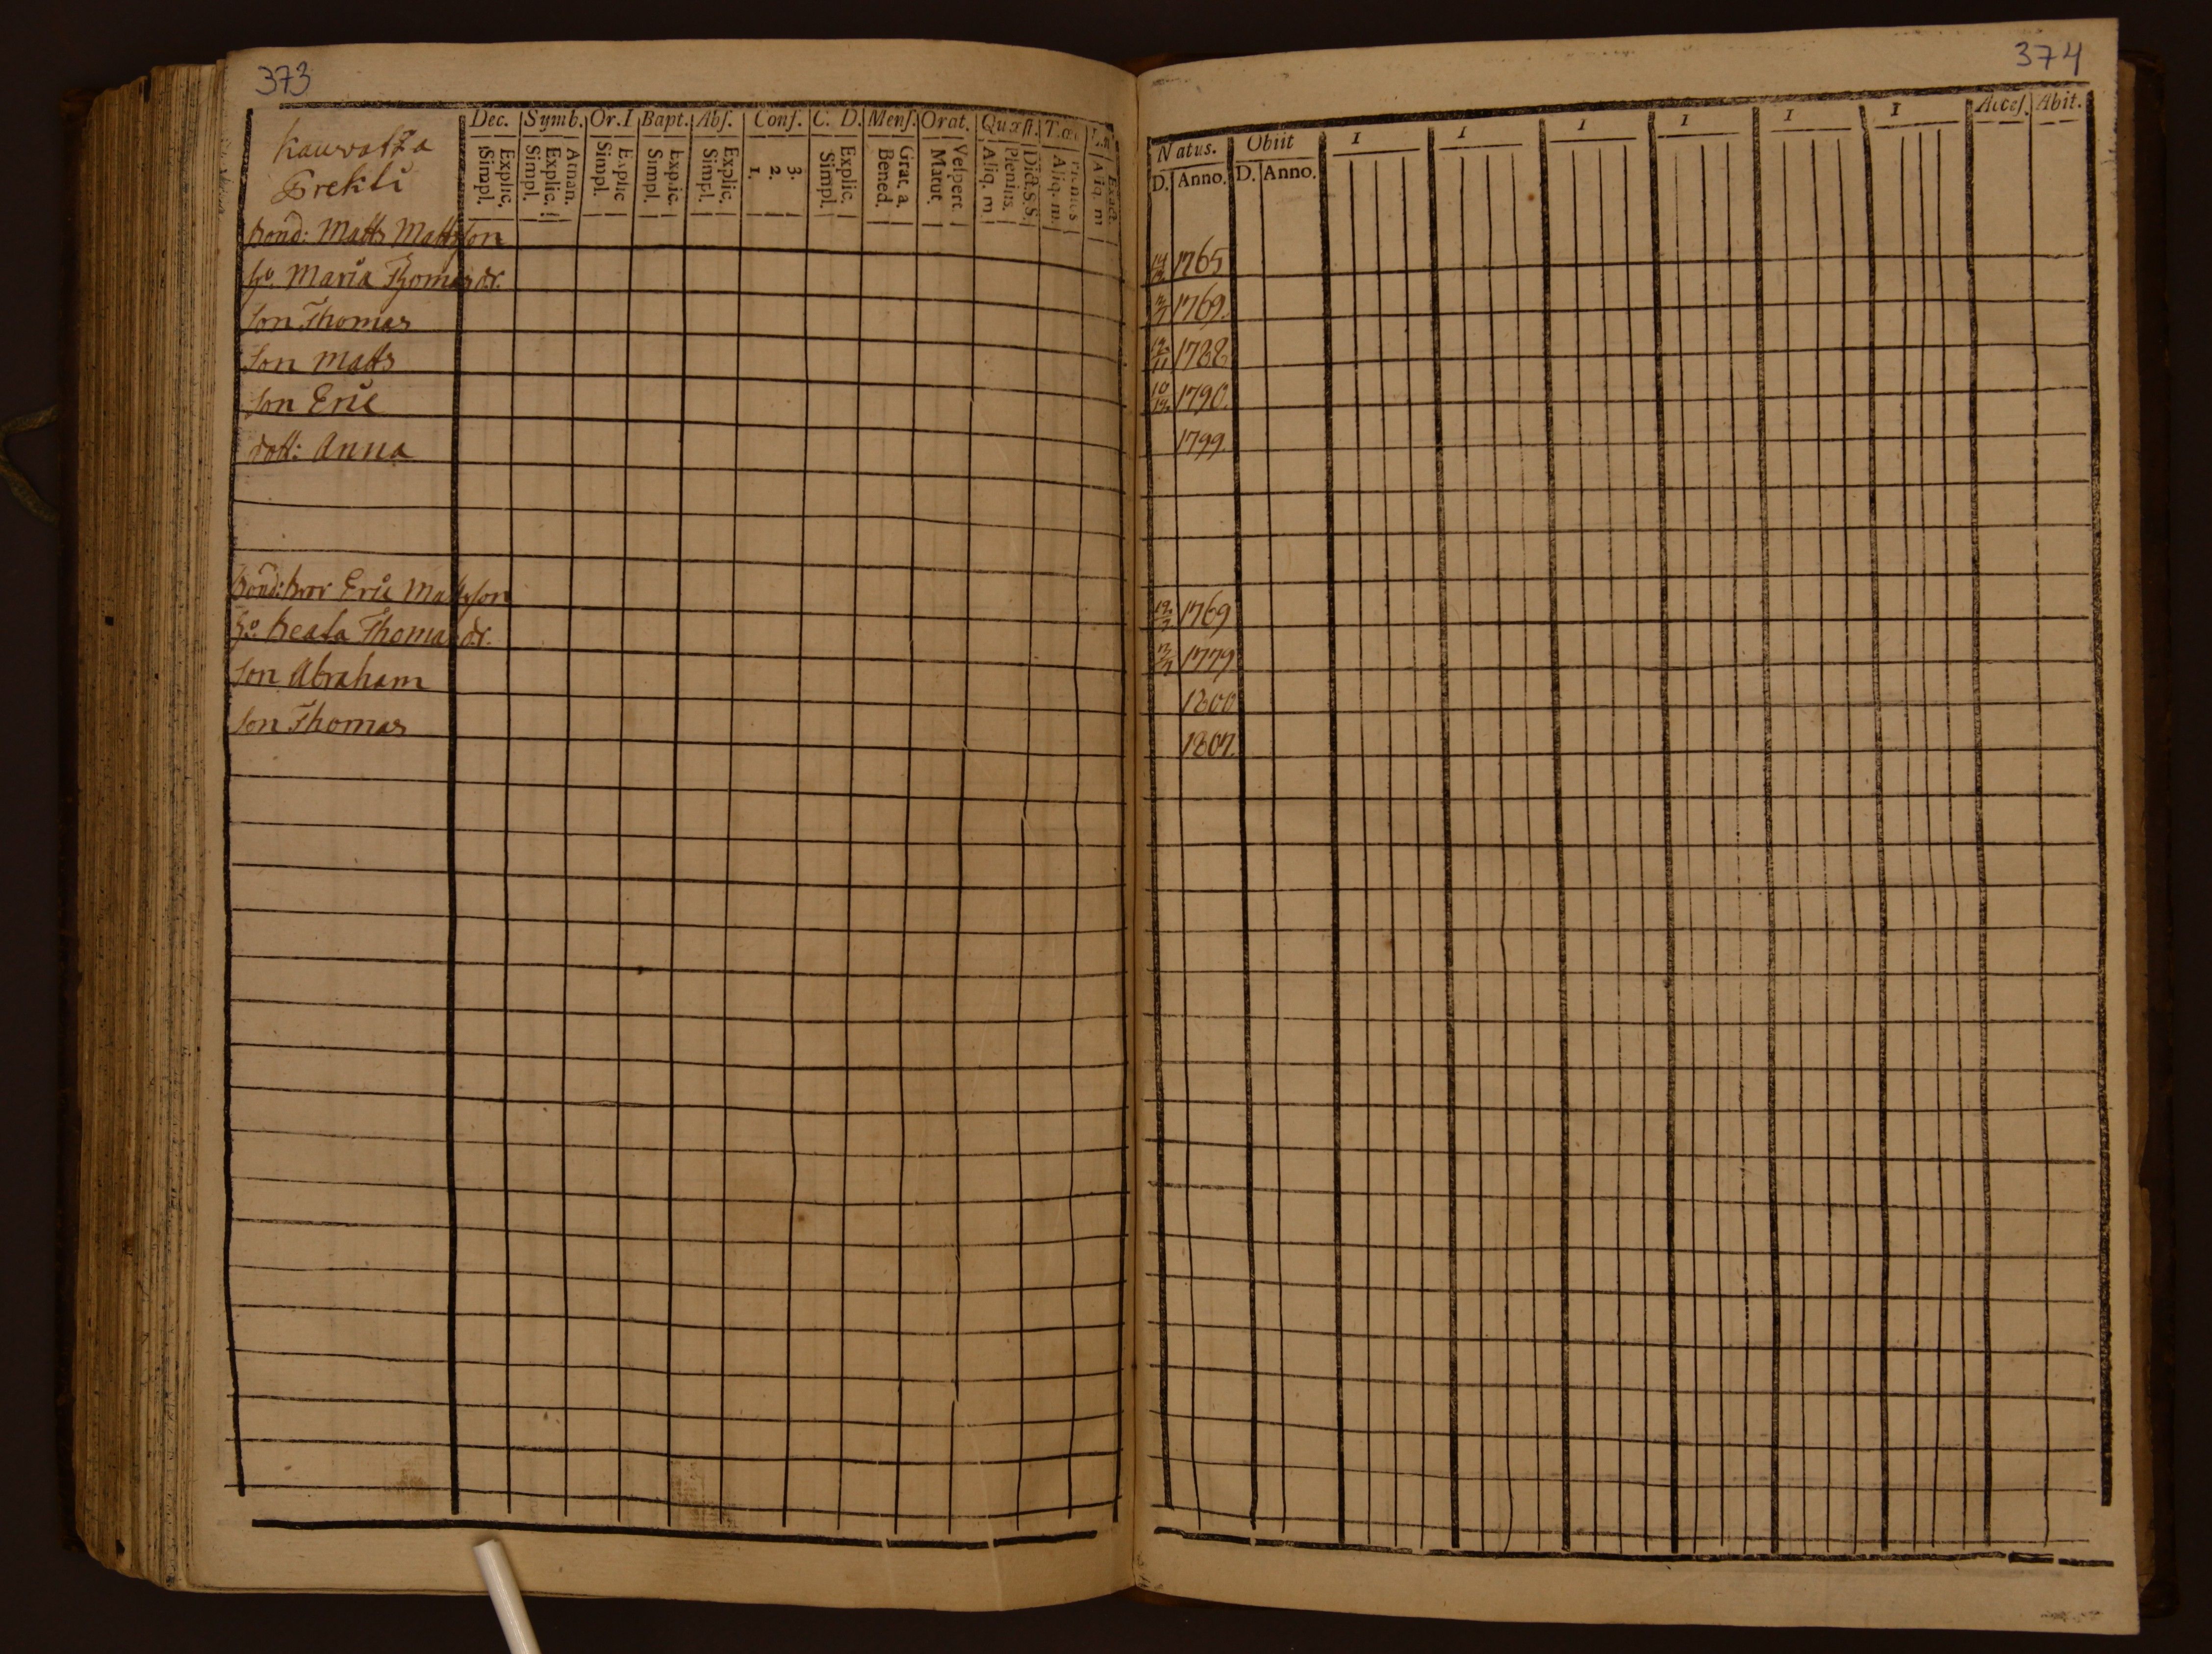 373
Kauvatza
Prekti
Dec. Symb. Or. I Bapt. Abs. Conf. C. D. Mens. Orat. Quæst.
Simpl. Explic. Simpl. Explic. Athan. Simpl. Explic Simpl. Explic. Simpl. Explic. 1. 2. 3. Simpl. Explic. Bened. Grat. a. Matut. Vespert. Aliq. m. Plenius. Dict. S.S. Aliq. m. Plenius Aliq. m Exact.
Bond: Matts Mattsson
Ho. Maria Thomasdr.
Son Thomas
Son Matts
Son Eric
dott: Anna
Bond: bror Eric Mattsson
Ho. Beata Thomasdr.
Son Abraham
Son Thomas
374
Natus. Obiit I I I I I I Acces. Abit.
D. Anno. D. Anno.
1765
1769.
1788
1790.
1799.
1769
1779
1800
1802.